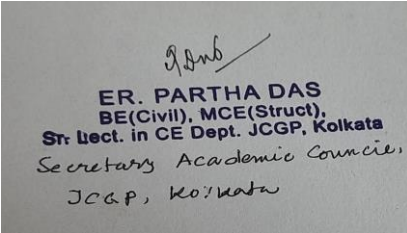 ER. PARTHA DAS
BE(Civil), MCE(Struct),
Sr. Lect. in CE Dept. JCGP, Kolkata
Secretary Academic Council,
JCGP, Kolkata